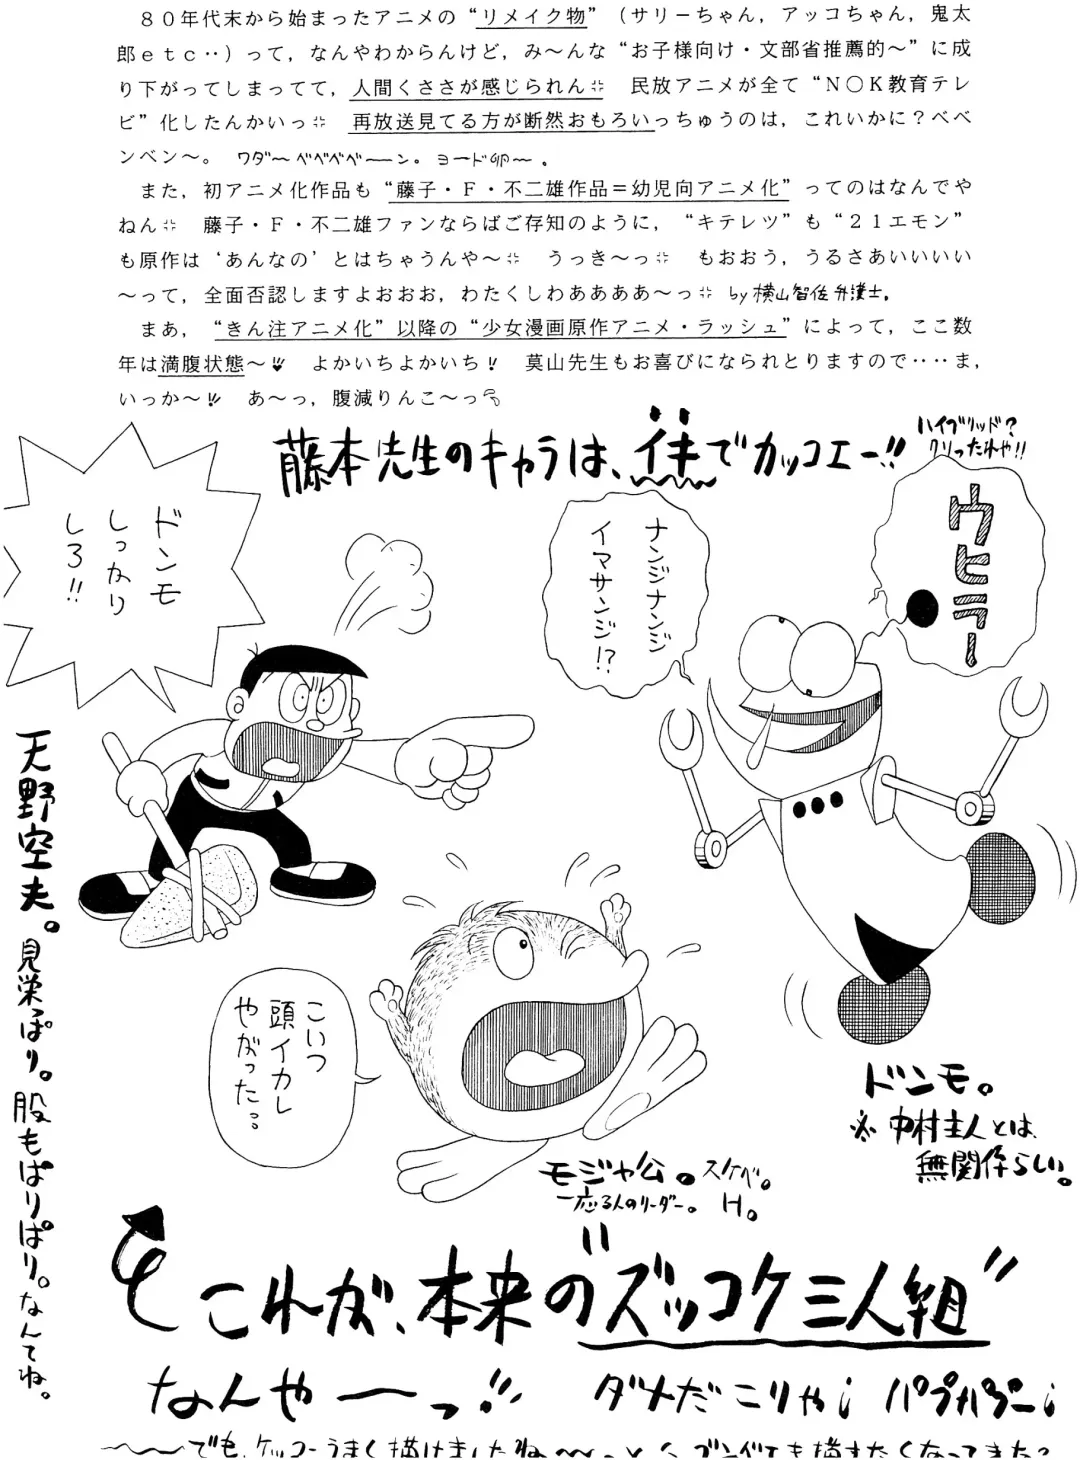 ８０年代末から始まったアニメの“リメイク物”（サリーちゃん，アッコちゃん，鬼太
郎ｅｔｃ‥）って，なんやわからんけど，み〜んな“お子様向け・文部省推薦的〜”に成
り下がってしまってて，人間くささが感じられん　民放アニメが全て“Ｎ〇Ｋ教育テレ
ビ”化したんかいっ　再放送見てる方が断然おもろいっちゅうのは，これいかに？ベベ
ンベン〜。　ワダ〜ベベベベ〜ン。ヨード卵〜。
また，初アニメ化作品も“藤子・Ｆ・不二雄作品＝幼児向アニメ化”ってのはなんでや
ねん　藤子・Ｆ・不二雄ファンならばご存知のように，“キテレツ”も“２１エモン”
も原作は‘あんなの’とはちゃうんや〜　うっき〜っ　もおおう，うるさあいいいい
〜って，全面否認しますよおおお，わたくしわああああ〜っ　by 横山智佐弁護士。
まあ，“きん注アニメ化”以降の“少女漫画原作アニメ・ラッシュ”によって，ここ数
年は満腹状態〜　よかいちよかいち！　莫山先生もお喜びになられとりますので‥‥ま，
いっか〜！！　あ〜っ，腹減りんこ〜っ
藤本先生のキャラは、イキでカッコエー!!
ハイブリッド？
クリったれや!!
ドンモ
しっかり
しろ!!
ナンジナンジ
イマサンジ!?
ウヒラー
天野空夫。見栄っぱり。股もぱりぱり。なんてね。
こいつ
頭イカレ
やがった…
ドンモ。
※中村主人とは、
無関係らしい。
モジャ公。スケベ。
一応３人のリーダー。　H。
これが、本来の“ズッコケ三人組”
なんやーっ!!　ダメだこりゃ¡　パプパプー¡
〜〜でも、ケッコーうまく描けましたね〜〜